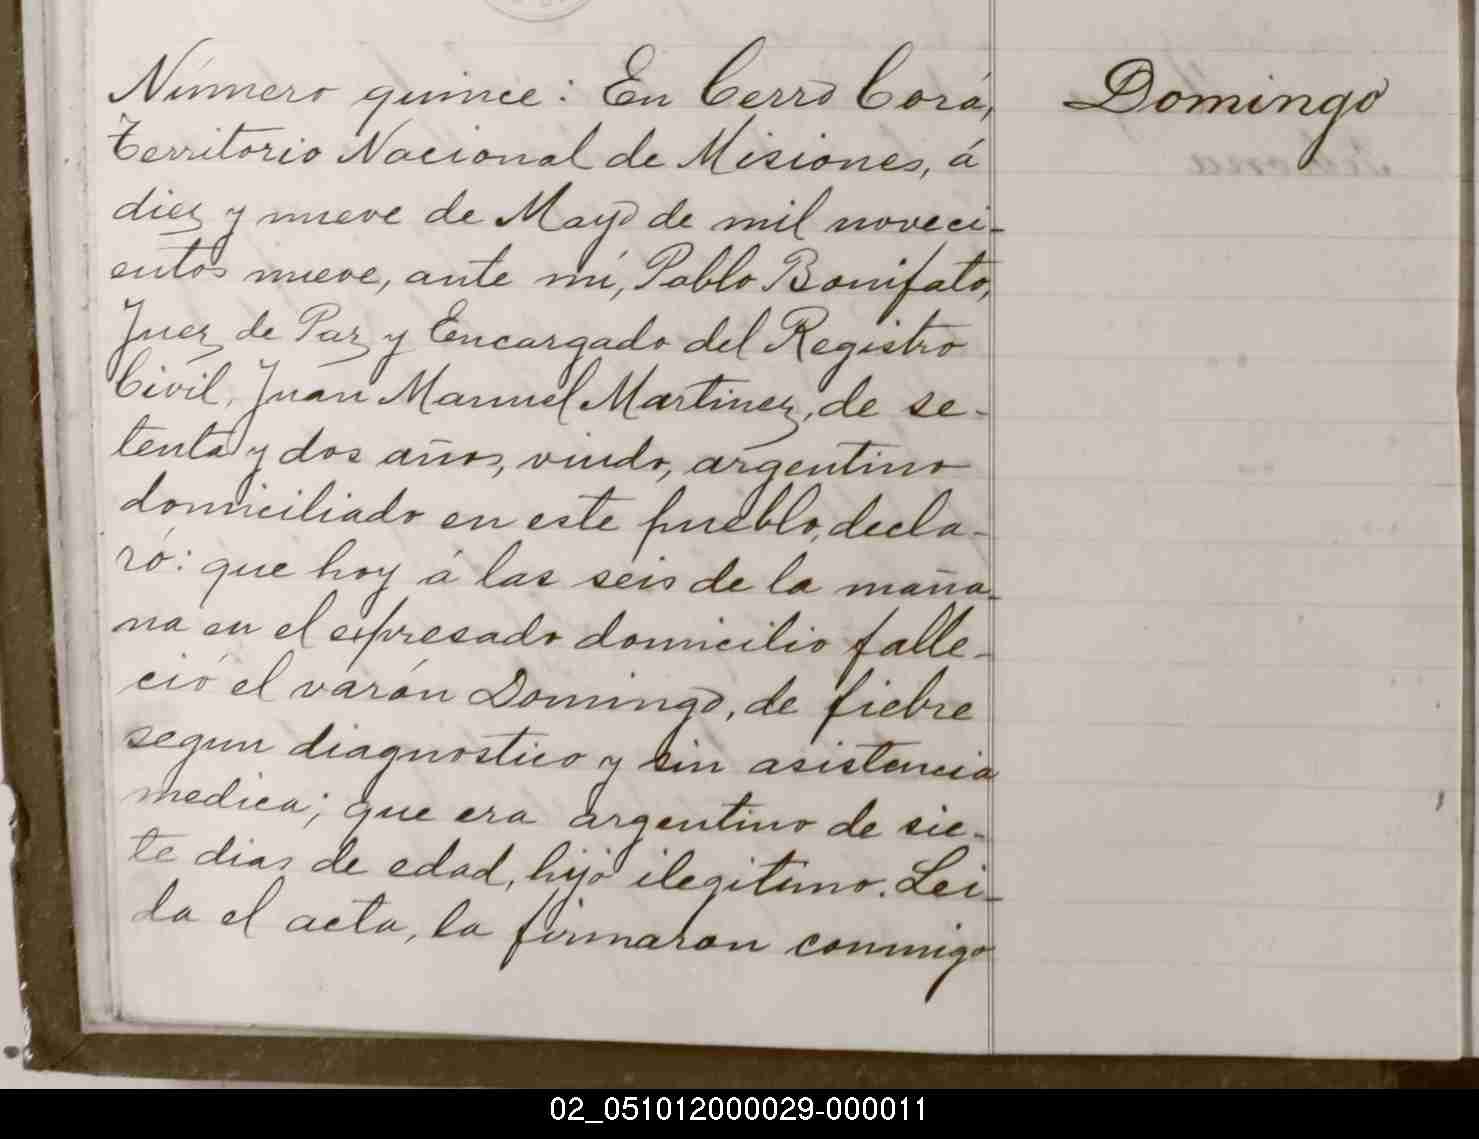 Número quince: En Cerro Corá,
Domingo
Territorio Nacional de Misiones, á
diez y nueve de Mayo de mil noveci-
entos nueve, ante mí, Pablo Bonifato,
Juez de Paz y Encargado del Registro
Civil, Juan Manuel Martinez, de se-
tenta y dos años, viudo, argentino
domiciliado en este pueblo, decla-
ró: que hoy á las seis de la maña-
na en el expresado domicilio falle-
ció el varón Domingo, de fiebre
segun diagnostico y sin asistencia
medica; que era argentino de sie-
te dias de edad, hijo ilegitimo. Lei-
da el acta, la firmaron conmigo
02_051012000029-000011